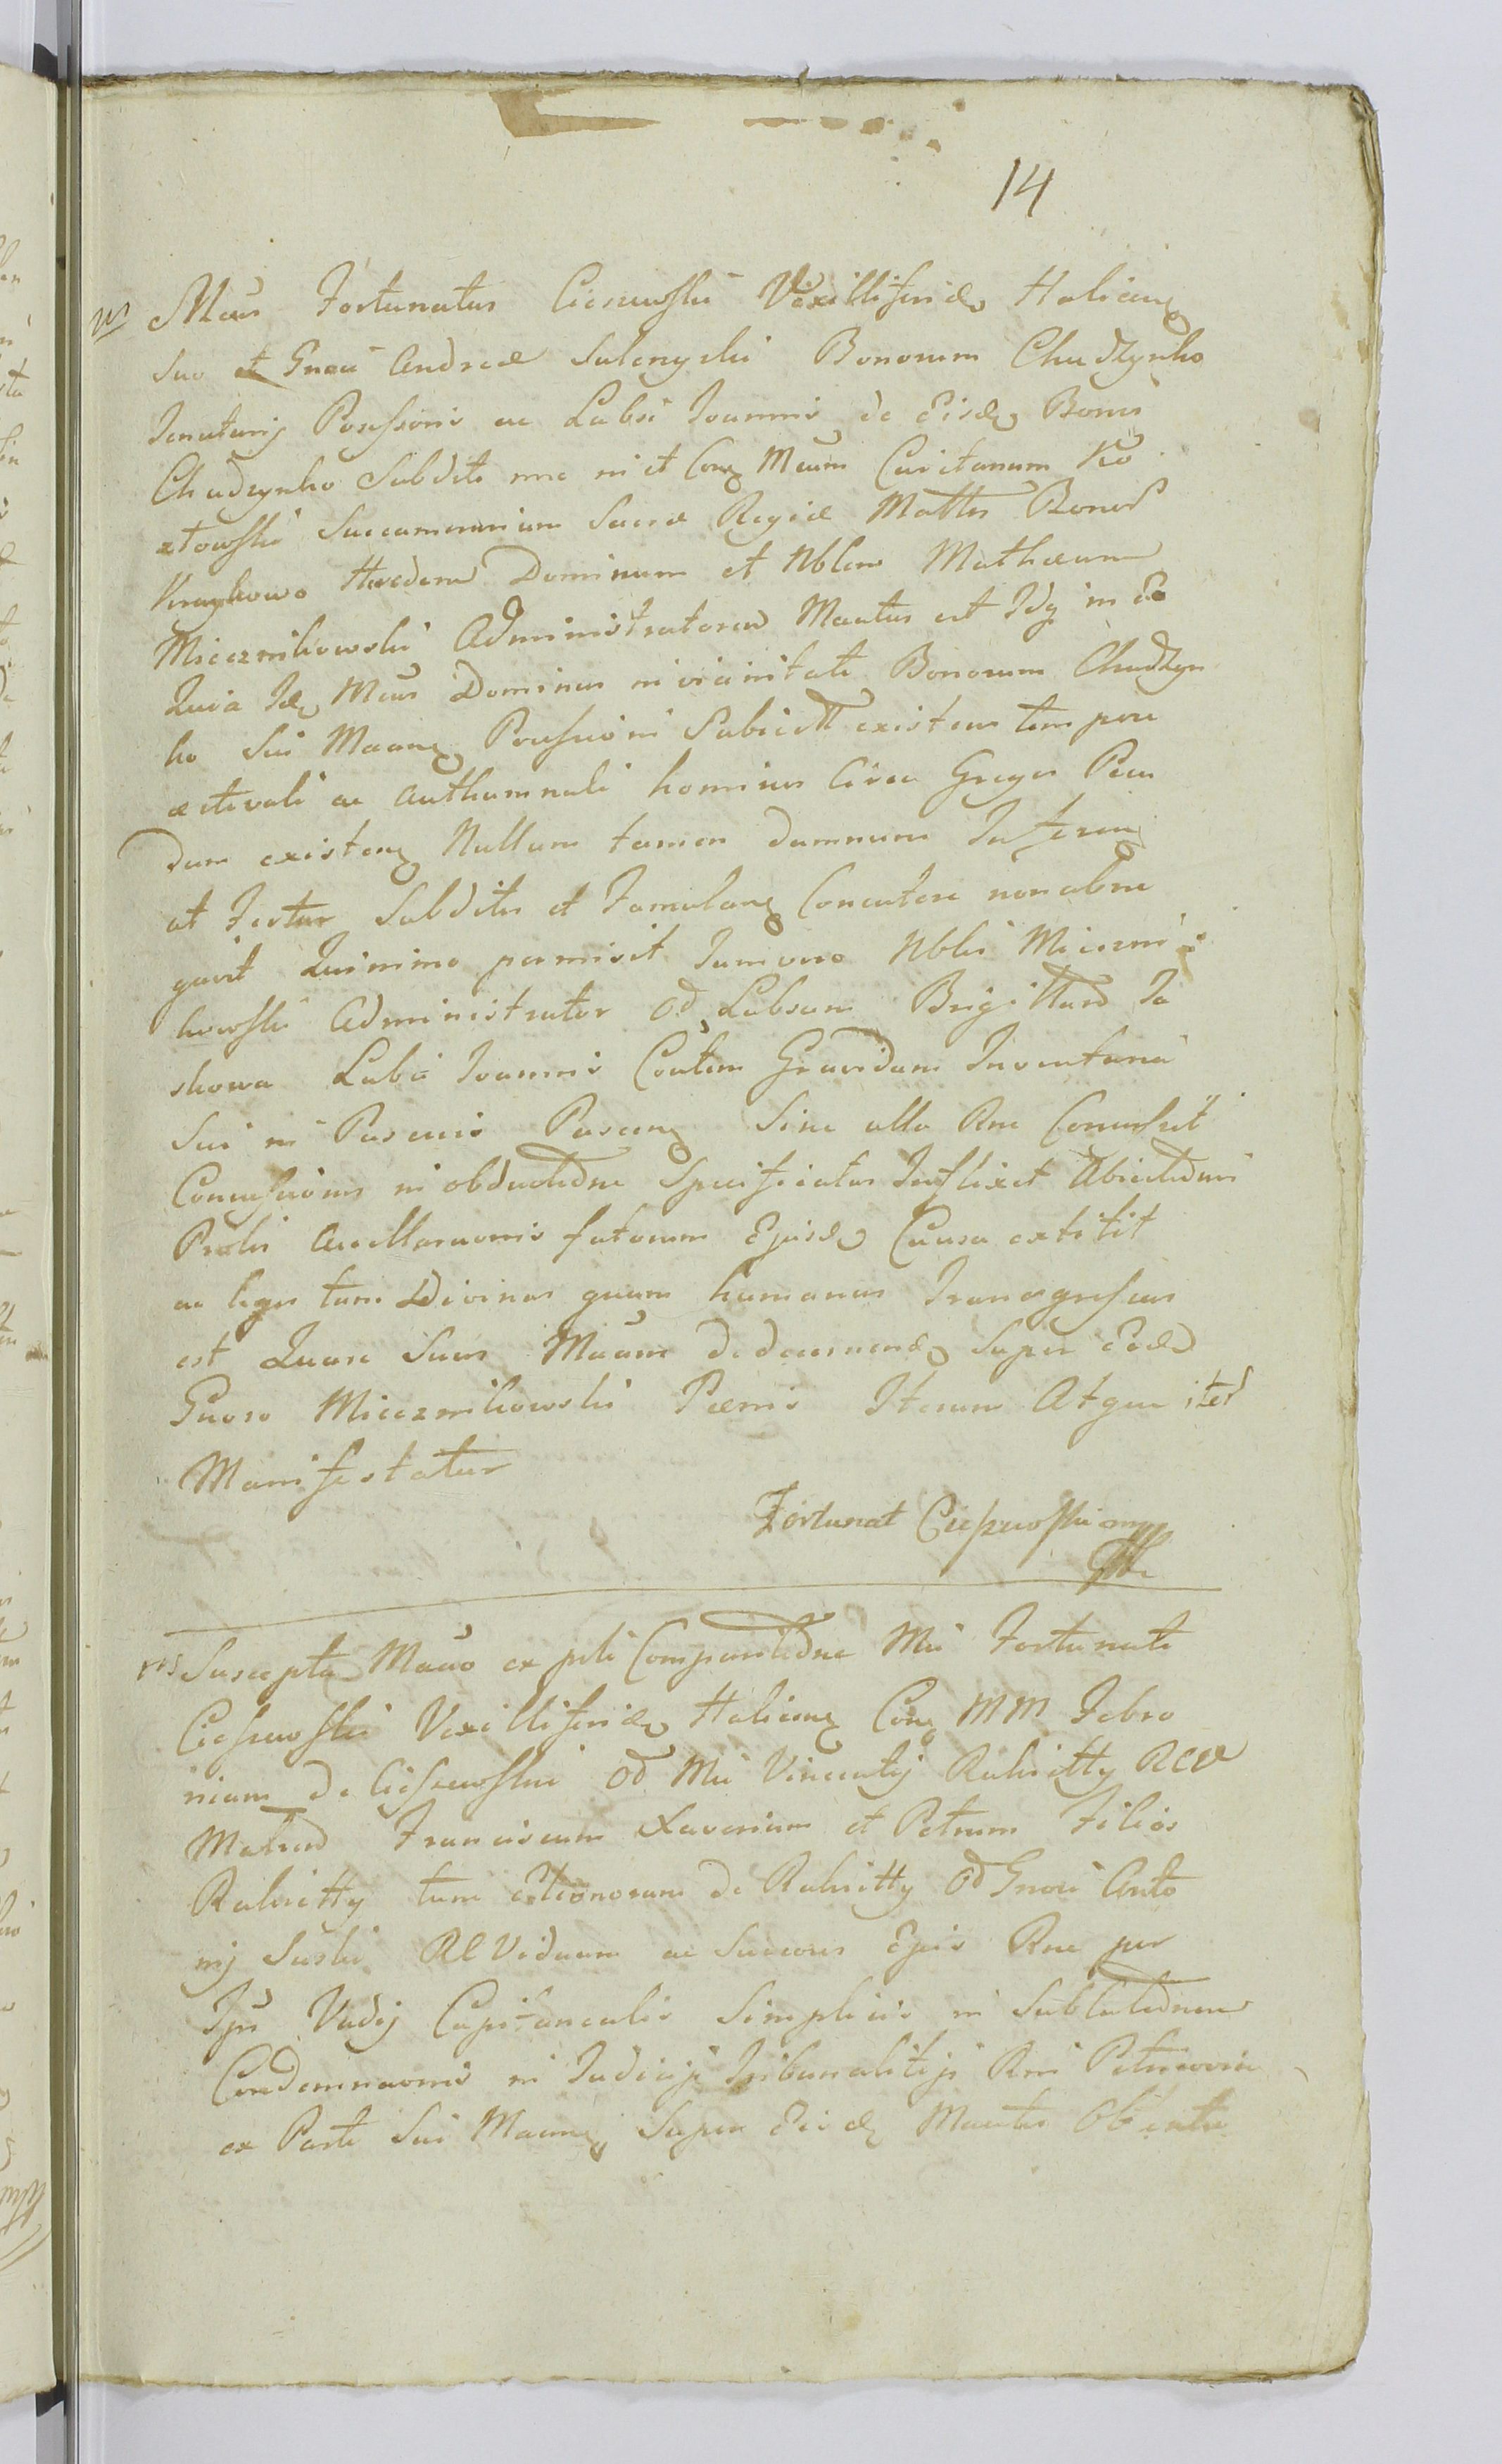 14
Mcus Fortunatus Cieszewski Vexilliferid Halicen
suo et Gnosi Andreæ Sulenyski Bonorum Chudzynko
Tenutarij Possessoris ac Labsi Joannis de Eisd Bonis
Chudzynko Subditi nne m et Con Mcum Cajetanum Ko
złowski Succamerarium Sacræ Regiæ Mattis Bonor
Kraykowo Hæredem Dominum et Nblem Mathæum
Miecznikowski Administratorem Mantus est Idq in Eo
Quia Id Mcus Dominus in vicinitate Bonorum Chudzyn
ko Sui Maan Possessioni Subiectt existens tempore
æstivali ac Authumnali homines Circa Greges Pecu
dum existen Nullum tamen damnum Inferen
at Fertur Subditis et Famulan Concutere non abne
gavit Quinimo permisit Jam vero Nblis Mieczni
kowski Administrator Od Labsam Brigittam Ja
skowa Labi Joannis Contem Gravidam Inventaria
Sui in Pascuis Pascen Sine ulla Rne Concussit
Concussiones in obductione Specificatas Inflixit Abiectionis
Prolis Ancillarumnis fatorum Ejusd Causa extitit
ac leges tum Divinas quam humanas Transgressus
est Quare Suus Maans de decernend Super Eod
Gnoso Miecznikowski Pænis Iterum Atque iter
Manifestatur
Fortunat Cieszewski mp
Suscepta Mauo ex psti Comparitione Mci Fortunati
Cieszewski Vexilliferid Halicien Con MM Febro
niam de Cieszewskie Od Mci Vincentij Rubietty RCV
Matrem Franciscum Xaverium et Petrum Filios
Rubietty tum Eleonoram de Rubietty Od Gnosi Anto
nij Suski RE Viduam ac Succores Ejus Rne per
Ipsi Vadij Capitanealis Simplicis in Sublatione
Condemnaonis in Judicijs Tribunalitijs Rni Petricovien
ex Parte Sui Maan Super Eisd Mantis Obtenta